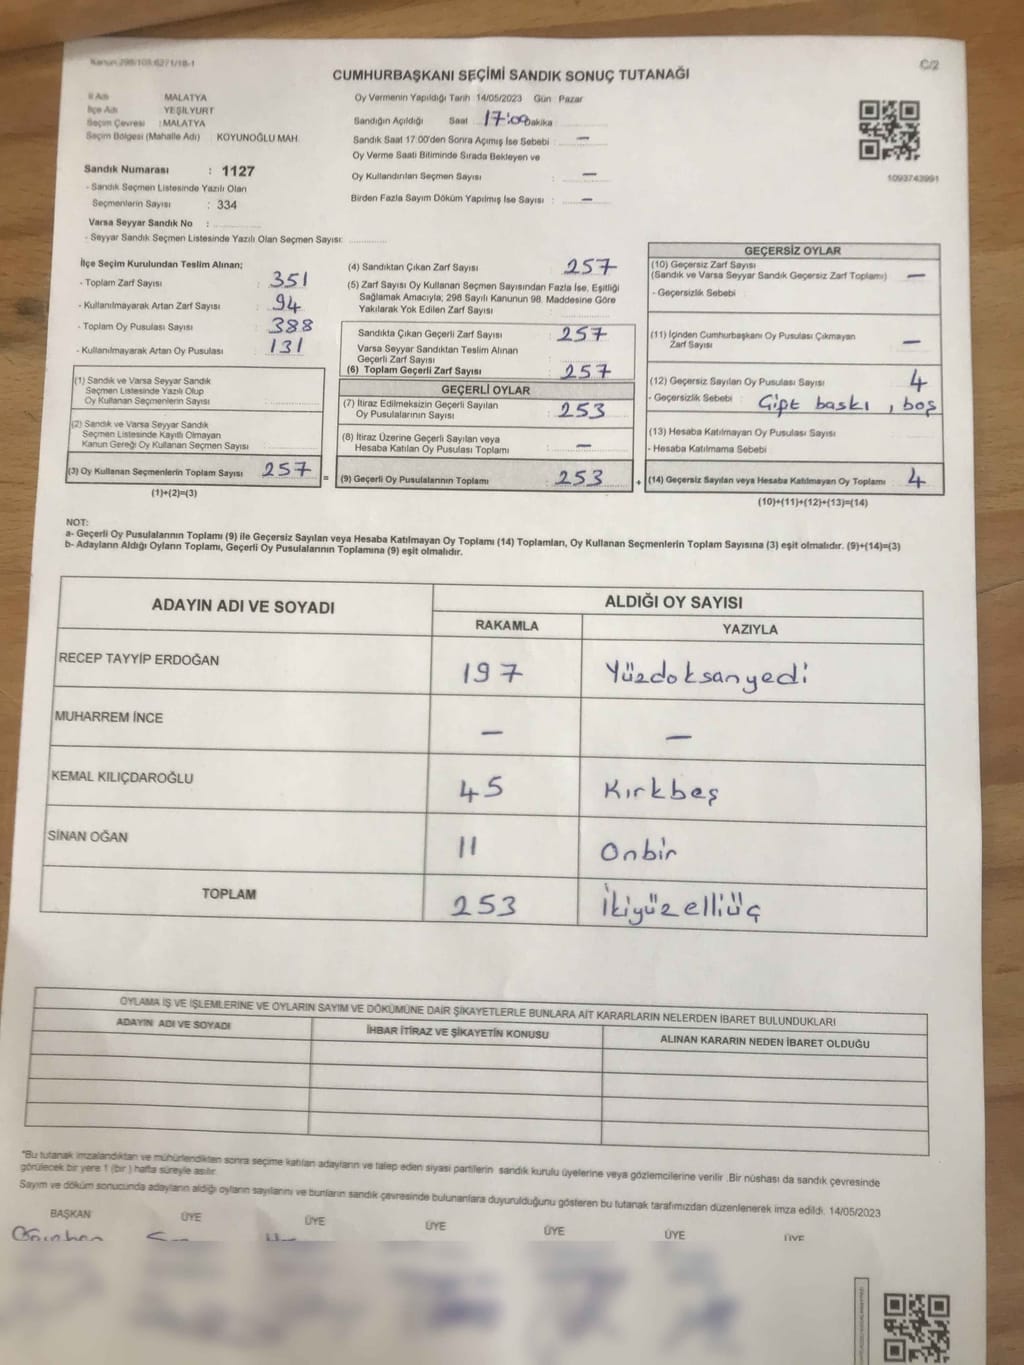 Kanun:298/105:6271/18-1
C/2
CUMHURBAŞKANI SEÇİMİ SANDIK SONUÇ TUTANAĞI
İl Adı MALATYA
İlçe Adı YEŞİLYURT
Seçim Çevresi : MALATYA
Seçim Bölgesi (Mahalle Adı) KOYUNOĞLU MAH.
Sandık Numarası : 1127
- Sandık Seçmen Listesinde Yazılı Olan
Seçmenlerin Sayısı : 334
Varsa Seyyar Sandık No :
- Seyyar Sandık Seçmen Listesinde Yazılı Olan Seçmen Sayısı:
Oy Vermenin Yapıldığı Tarih 14/05/2023 Gün : Pazar
Sandığın Açıldığı Saat 17:00 Dakika
Sandık Saat 17:00'den Sonra Açımış İse Sebebi : —
Oy Verme Saati Bitiminde Sırada Bekleyen ve
Oy Kullandırılan Seçmen Sayısı : —
Birden Fazla Sayım Döküm Yapılmış İse Sayısı : —
1093743991
İlçe Seçim Kurulundan Teslim Alınan;
- Toplam Zarf Sayısı : 351
- Kullanılmayarak Artan Zarf Sayısı : 94
- Toplam Oy Pusulası Sayısı : 388
- Kullanılmayarak Artan Oy Pusulası : 131
(1) Sandık ve Varsa Seyyar Sandık
Seçmen Listesinde Yazılı Olup
Oy Kullanan Seçmenlerin Sayısı
(2) Sandık ve Varsa Seyyar Sandık
Seçmen Listesinde Kayıtlı Olmayan
Kanun Gereği Oy Kullanan Seçmen Sayısı
(3) Oy Kullanan Seçmenlerin Toplam Sayısı 257
(1)+(2)=(3)
(4) Sandıktan Çıkan Zarf Sayısı : 257
(5) Zarf Sayısı Oy Kullanan Seçmen Sayısından Fazla İse, Eşitliği
Sağlamak Amacıyla; 298 Sayılı Kanunun 98. Maddesine Göre
Yakılarak Yok Edilen Zarf Sayısı :
Sandıkta Çıkan Geçerli Zarf Sayısı : 257
Varsa Seyyar Sandıktan Teslim Alınan
Geçerli Zarf Sayısı
(6) Toplam Geçerli Zarf Sayısı : 257
GEÇERLİ OYLAR
(7) İtiraz Edilmeksizin Geçerli Sayılan
Oy Pusulalarının Sayısı : 253
(8) İtiraz Üzerine Geçerli Sayılan veya
Hesaba Katılan Oy Pusulası Toplamı : —
= (9) Geçerli Oy Pusulalarının Toplamı : 253 +
GEÇERSİZ OYLAR
(10) Geçersiz Zarf Sayısı
(Sandık ve Varsa Seyyar Sandık Geçersiz Zarf Toplamı) : —
- Geçersizlik Sebebi :
(11) İçinden Cumhurbaşkanı Oy Pusulası Çıkmayan
Zarf Sayısı : —
(12) Geçersiz Sayılan Oy Pusulası Sayısı : 4
- Geçersizlik Sebebi : Çipt baskı , boş
(13) Hesaba Katılmayan Oy Pusulası Sayısı :
- Hesaba Katılmama Sebebi
(14) Geçersiz Sayılan veya Hesaba Katılmayan Oy Toplamı : 4
(10)+(11)+(12)+(13)=(14)
NOT:
a- Geçerli Oy Pusulalarının Toplamı (9) ile Geçersiz Sayılan veya Hesaba Katılmayan Oy Toplamı (14) Toplamları, Oy Kullanan Seçmenlerin Toplam Sayısına (3) eşit olmalıdır. (9)+(14)=(3)
b- Adayların Aldığı Oyların Toplamı, Geçerli Oy Pusulalarının Toplamına (9) eşit olmalıdır.
ADAYIN ADI VE SOYADI
ALDIĞI OY SAYISI
RAKAMLA YAZIYLA
RECEP TAYYİP ERDOĞAN 197 Yüzdoksanyedi
MUHARREM İNCE — —
KEMAL KILIÇDAROĞLU 45 Kırkbeş
SİNAN OĞAN 11 Onbir
TOPLAM 253 İkiyüzelliüç
OYLAMA İŞ VE İŞLEMLERİNE VE OYLARIN SAYIM VE DÖKÜMÜNE DAİR ŞİKAYETLERLE BUNLARA AİT KARARLARIN NELERDEN İBARET BULUNDUKLARI
ADAYIN ADI VE SOYADI İHBAR İTİRAZ VE ŞİKAYETİN KONUSU ALINAN KARARIN NEDEN İBARET OLDUĞU
"Bu tutanak imzalandıktan ve mühürlendikten sonra seçime katılan adayların ve talep eden siyasi partilerin sandık kurulu üyelerine veya gözlemcilerine verilir. Bir nüshası da sandık çevresinde
görülecek bir yere 1 (bir) hafta süreyle asılır.
Sayım ve döküm sonucunda adayların aldığı oyların sayılarını ve bunların sandık çevresinde bulunanlara duyurulduğunu gösteren bu tutanak tarafımızdan düzenlenerek imza edildi. 14/05/2023
BAŞKAN ÜYE ÜYE ÜYE ÜYE ÜYE ÜYE